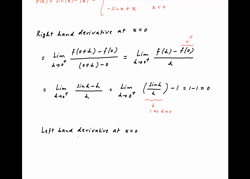 f(x) = sin(x) - (x) = { -sinx + x    x < 0
Right hand derivative at x=0
= Lim h→0⁺ f(0+h) - f(0) / (0+h) - 0 = Lim h→0⁺ f(h) - f(0) / h
0
= Lim h→0⁺ sinh - h / h = Lim h→0⁺ (sinh / h) - 1 = 1 - 1 = 0
1 as h→0
Left hand derivative at x=0